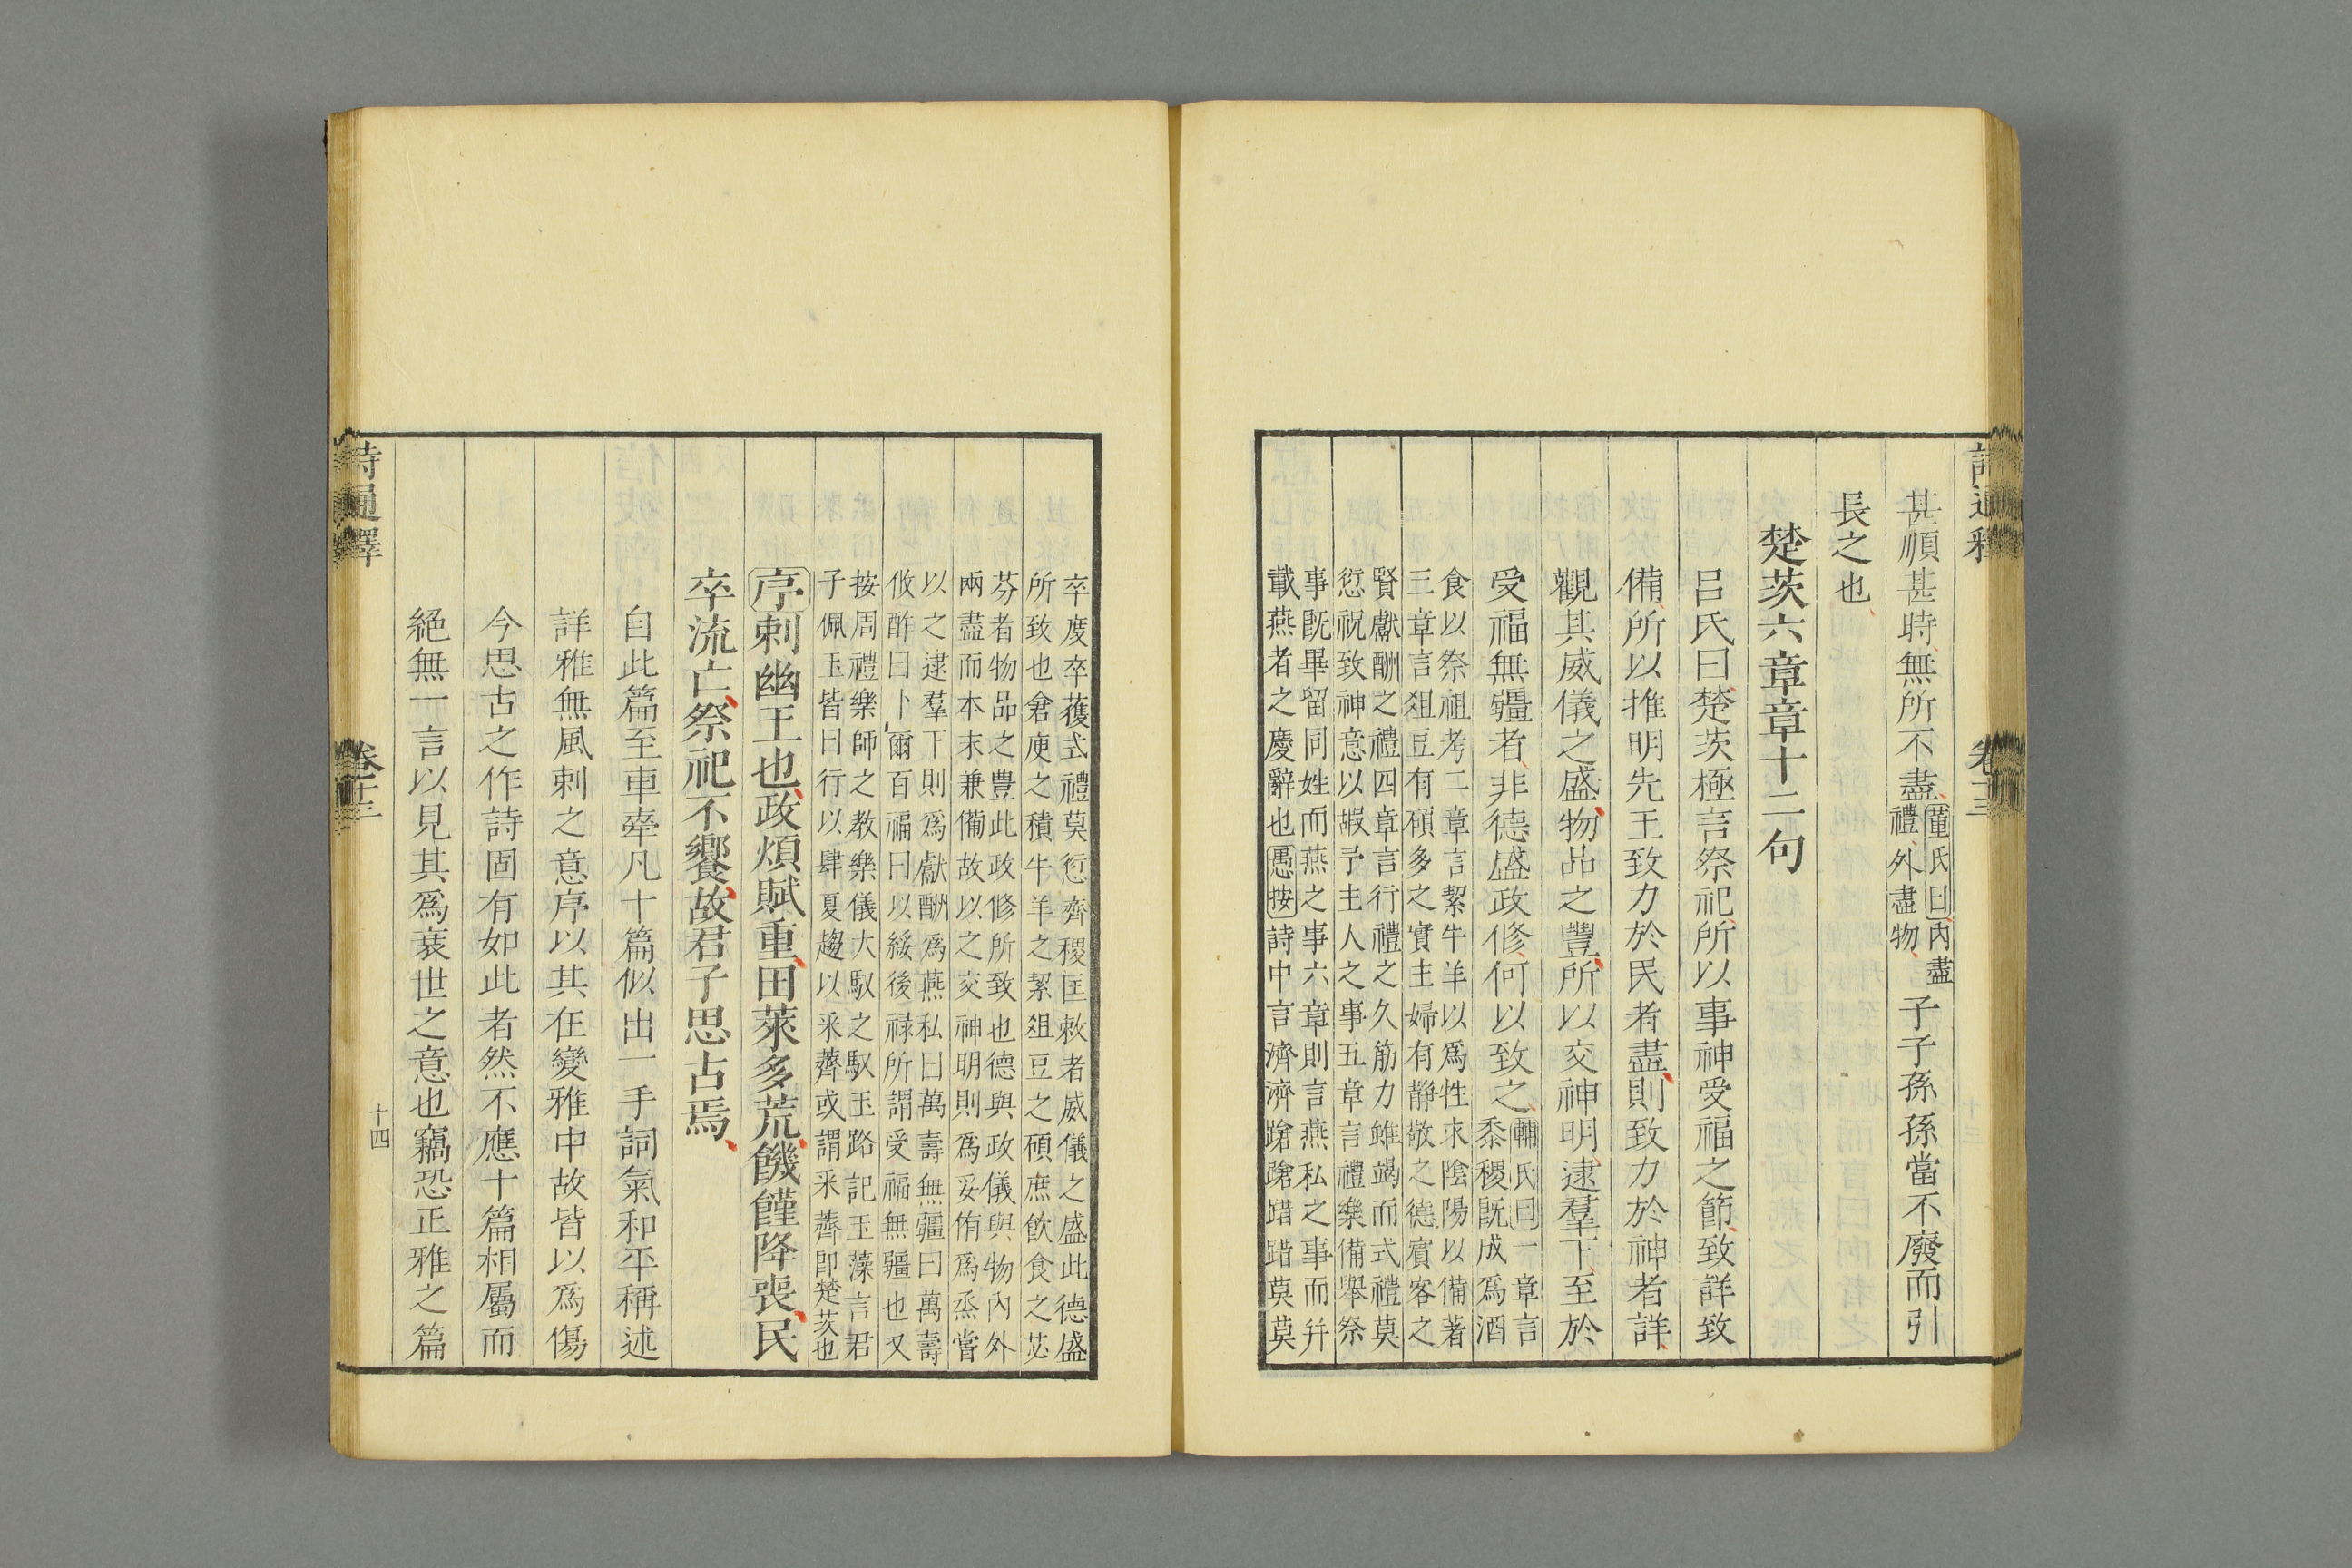 詩通釋 卷十三
甚順甚時無所不盡董氏曰内盡禮外盡物子子孫孫當不廢而引
長之也
楚茨六章章十二句
呂氏曰楚茨極言祭祀所以事神受福之節致詳致
備所以推明先王致力於民者盡則致力於神者詳
觀其威儀之盛物品之豐所以交神明逮羣下至於
受福無疆者非德盛政修何以致之輔氏曰一章言黍稷既成爲酒
食以祭祖考二章言絜牛羊以爲牲求陰陽以備著
三章言俎豆有碩多之實主婦有靜敬之德賓客之
賢獻酬之禮四章言行禮之久筋力雖竭而式禮莫
愆祝致神意以嘏予主人之事五章言禮樂備舉祭
事既畢留同姓而燕之事六章則言燕私之事而幷
載燕者之慶辭也愚按詩中言濟濟蹌蹌踖踖莫莫
卒度卒獲式禮莫愆齊稷匡敕者威儀之盛此德盛
所致也倉庾之積牛羊之絜俎豆之碩庶飲食之苾
芬者物品之豐此政修所致也德與政儀與物內外
兩盡而本末兼備故以之交神明則爲妥侑爲烝嘗
以之逮羣下則爲獻酬爲燕私曰萬壽無疆曰萬壽
攸酢曰卜爾百福曰以綏後祿所謂受福無疆也又
按周禮樂師之教樂儀大馭之馭玉路記玉藻言君
子佩玉皆曰行以肆夏趨以采薺或謂采薺即楚茨也
序刺幽王也政煩賦重田萊多荒饑饉降喪民
卒流亡祭祀不饗故君子思古焉
自此篇至車舝凡十篇似出一手詞氣和平稱述
詳雅無風刺之意序以其在變雅中故皆以爲傷
今思古之作詩固有如此者然不應十篇相屬而
絕無一言以見其爲衰世之意也竊恐正雅之篇
詩通釋 卷十三 十四